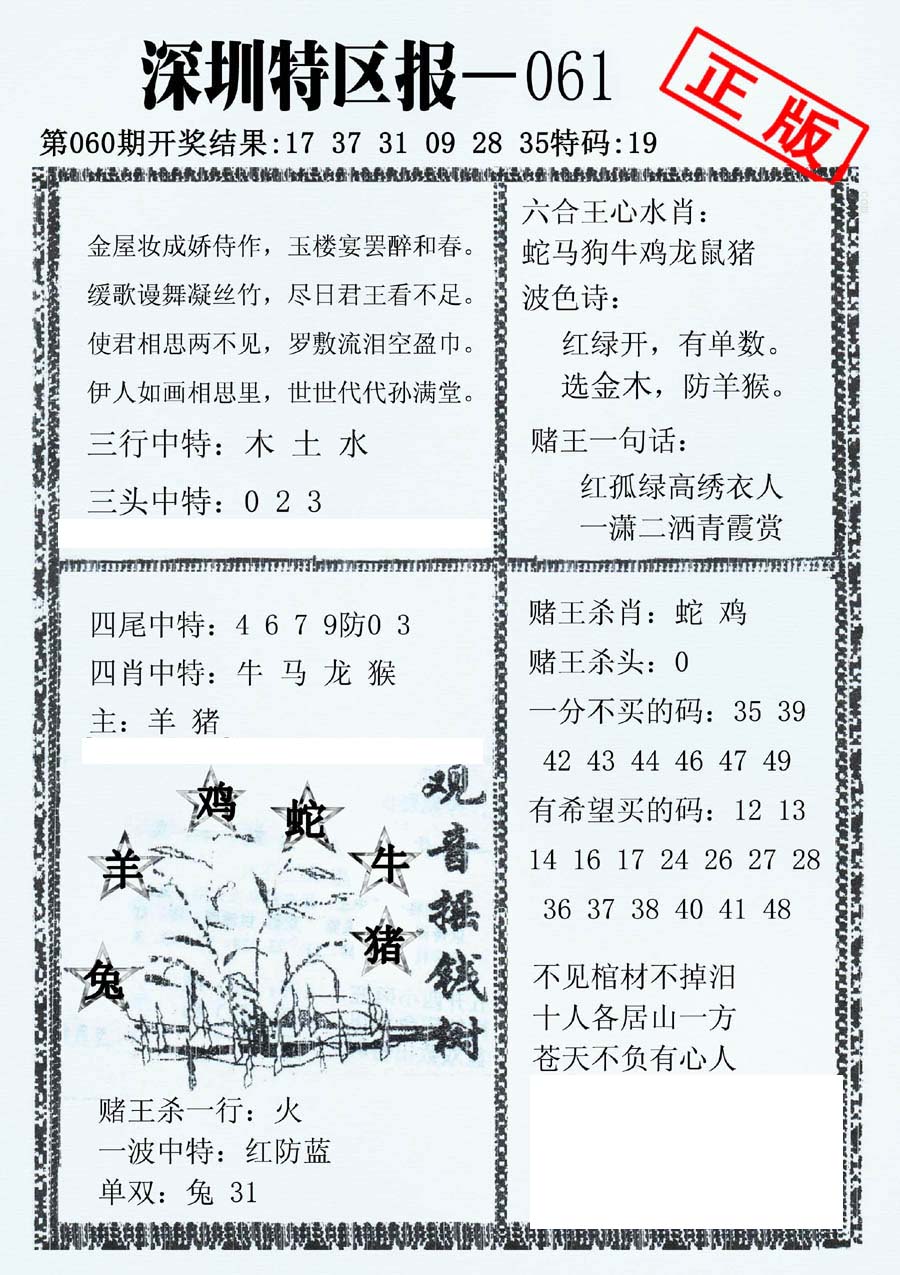 深圳特区报—061
正版
第060期开奖结果:17 37 31 09 28 35特码:19
金屋妆成娇侍作，玉楼宴罢醉和春。
缓歌谩舞凝丝竹，尽日君王看不足。
使君相思两不见，罗敷流泪空盈巾。
伊人如画相思里，世世代代孙满堂。
三行中特：木 土 水
三头中特：0 2 3
六合王心水肖：
蛇马狗牛鸡龙鼠猪
波色诗：
红绿开，有单数。
选金木，防羊猴。
赌王一句话：
红孤绿高绣衣人
一潇二洒青霞赏
四尾中特：4 6 7 9防0 3
四肖中特：牛 马 龙 猴
主：羊 猪
鸡
蛇
羊
牛
猪
兔
观音摇钱树
赌王杀一行：火
一波中特：红防蓝
单双：兔 31
赌王杀肖：蛇 鸡
赌王杀头：0
一分不买的码：35 39
42 43 44 46 47 49
有希望买的码：12 13
14 16 17 24 26 27 28
36 37 38 40 41 48
不见棺材不掉泪
十人各居山一方
苍天不负有心人